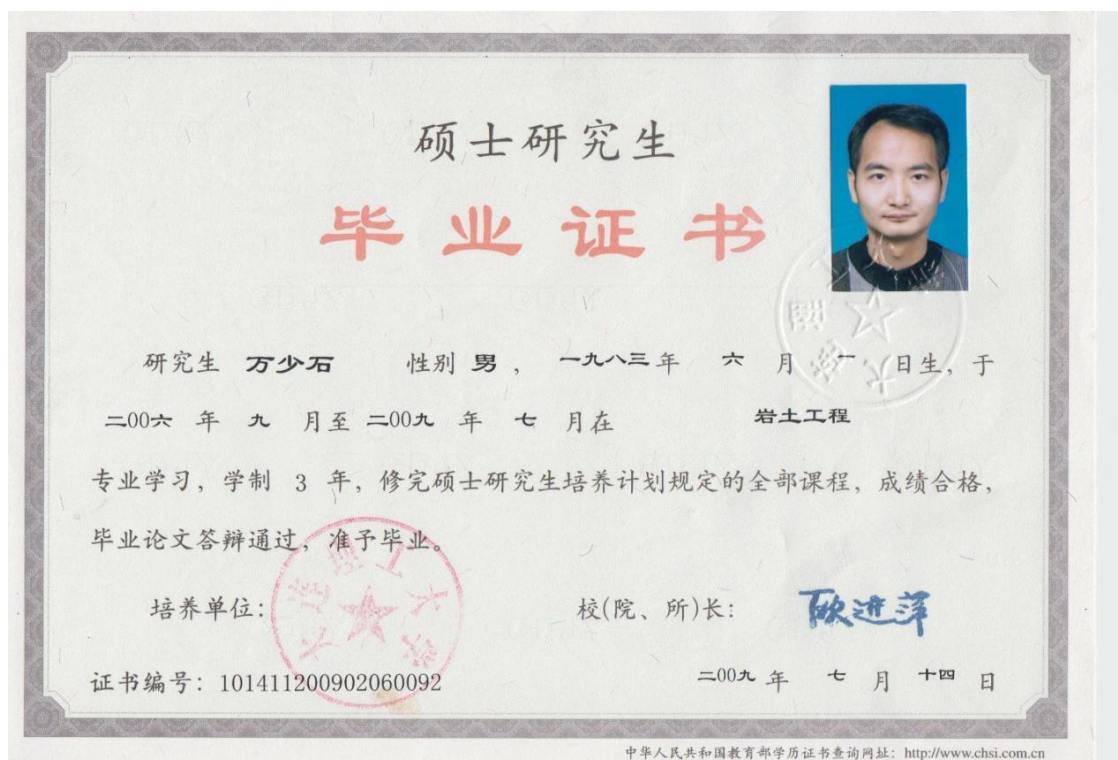 硕士研究生
毕业证书
研究生 万少石 性别 男 ， 一九八三 年 六 月 一 日生，于
二00六 年 九 月至 二00九 年 七 月在 岩土工程
专业学习，学制 3 年，修完硕士研究生培养计划规定的全部课程，成绩合格，
毕业论文答辩通过，准予毕业。
大连理工大学
培养单位： 校(院、所)长： 欧进萍
证书编号：101411200902060092 二00九 年 七 月 十四 日
中华人民共和国教育部学历证书查询网址：http://www.chsi.com.cn